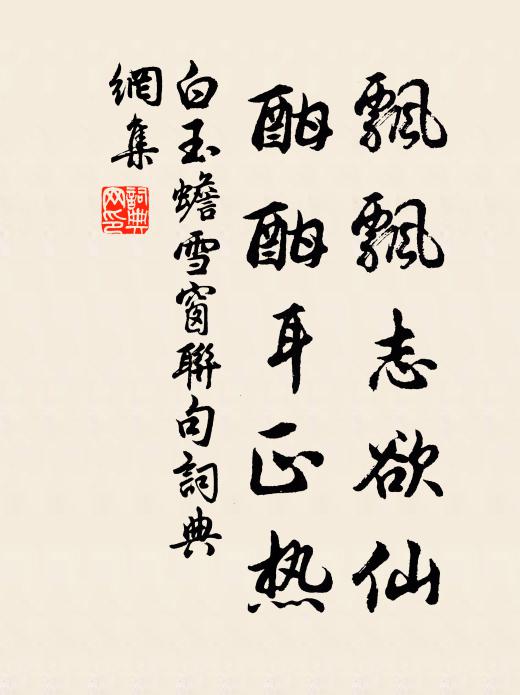 飄飄志欲仙
酣酣耳正热
白玉蟾雪窗聯句詞典
網集
詞典網印